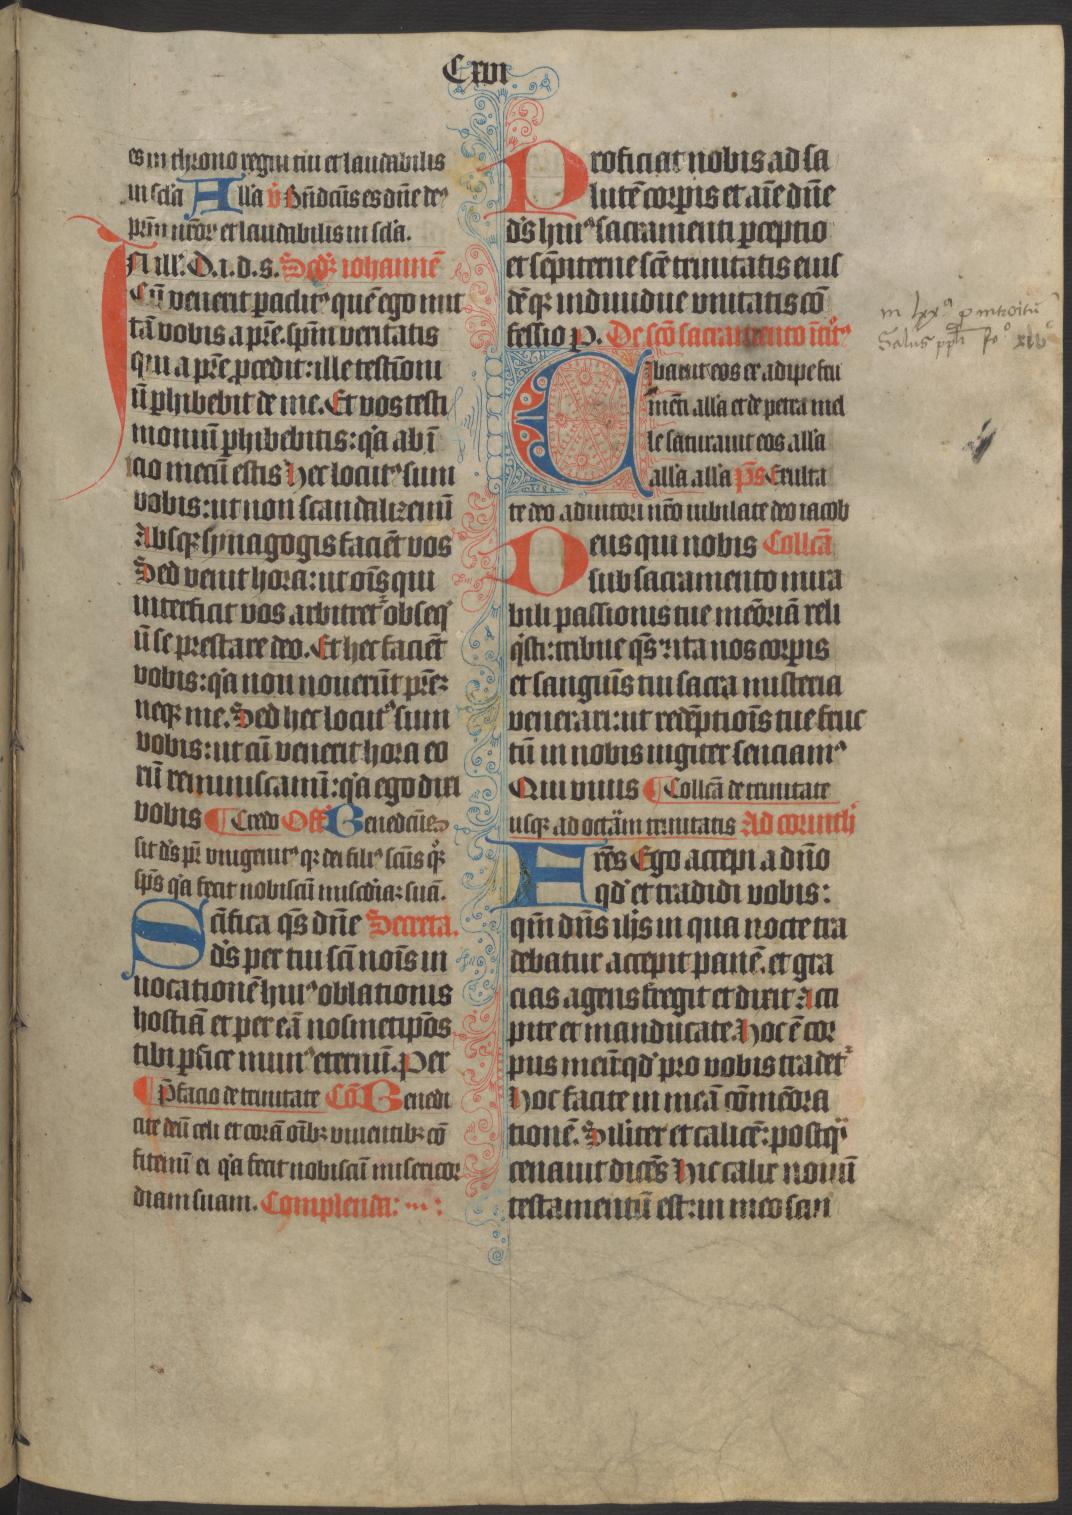 Cxvi
es in throno regni tui et laudabilis
in scl̄a Alla v̄ Bn̄dcūs es dn̄e deꝰ
pr̄m nr̄oꝝ et laudabilis in scl̄a.
In ill̄. D.i.d.s. Scd̄ꝫ iohannē
Cū venerit paclitꝰ quē ego mit
tā vobis a pr̄e. spm̄ veritatis
qui a pr̄e ꝓcedit: ille testīoni
ū phibebit de me. Et vos testi
moniū phibebitis: qͥa ab ī
icio mecū estis Hec locutꝰ sum
vobis: ut non scandalizemī
Absqꝫ synagogis faciēt vos
Sed venit hora: ut oīs qui
interficit vos arbitretᷣ obseqͥ
ū se prestare deo. Et hec faciēt
vobis: qͥa non noverūt pr̄eꝫ
neqꝫ me. Sed hec locutꝰ sum
vobis: ut cū venerit hora eo
rū reminiscamī: qͥa ego dixi
vobis ¶ Credo Off̄ Benedcūs
sit ds̄ pr̄ vnigenitꝰ qꝫ dei filiꝰ scūs qͦꝫ
sp̄s qͥa fecit nobiscū miscd̄iaꝫ suā.
Scīfica qs̄ dn̄e Secreta.
ds̄ per tui scī noīs in
vocationē huiꝰ oblationis
hostiā et per eā nosmetip̄os
tibi ꝑfice munꝰ eternū. Per
¶ P̄facio de trinitate Cō Benedi
cite deū celi et corā oībꝫ viventibꝫ cō
fitemī ei qͥa fecit nobiscū misericor
diam suam. Complenda:
Proficiat nobis ad sa
lutē corꝑis et aīe dn̄e
ds̄ huiꝰ sacramenti ꝑceptio
et sēpiterne scē trinitatis eius
dēqꝫ individue vnitatis cō
fessio P. De scō sacramento ītͦꝰ
Cibavit eos ex adipe fru
menti all̄a et de petra mel
le saturavit eos all̄a
all̄a all̄a ps̄ Exulta
te deo adiutori nr̄o iubilate deo iacob
Deus qui nobis Collcā
sub sacramento mira
bili passionis tue meōriā reli
qͥsti: tribue qs̄ ita nos corꝑis
et sanguīs tui sacra misteria
venerari: ut redēptiōis tue fruc
tū in nobis iugiter senciamꝰ
Qui vivis ¶ Collcā de trinitate
usqꝫ ad octāᷓm trinitatis Ad corinth̄
Frēs Ego accepi a dn̄o
qd̓ et tradidi vobis:
qm̄ dn̄s ihs̄ in qua nocte tra
debatur accepit panē. et gra
cias agens fregit et dixit: Acci
pite et manducate. Hoc ē cor
pus meū: qd̓ pro vobis tradetᷣ
Hoc facite in meā cōmeōra
tionē. Siliter et calicē: postqͣ
cenavit dicēs Hic calix novū
testamentū est: in meo san
in lxxᵃ ꝓ introitu
Salus ppl̄i fo xlv